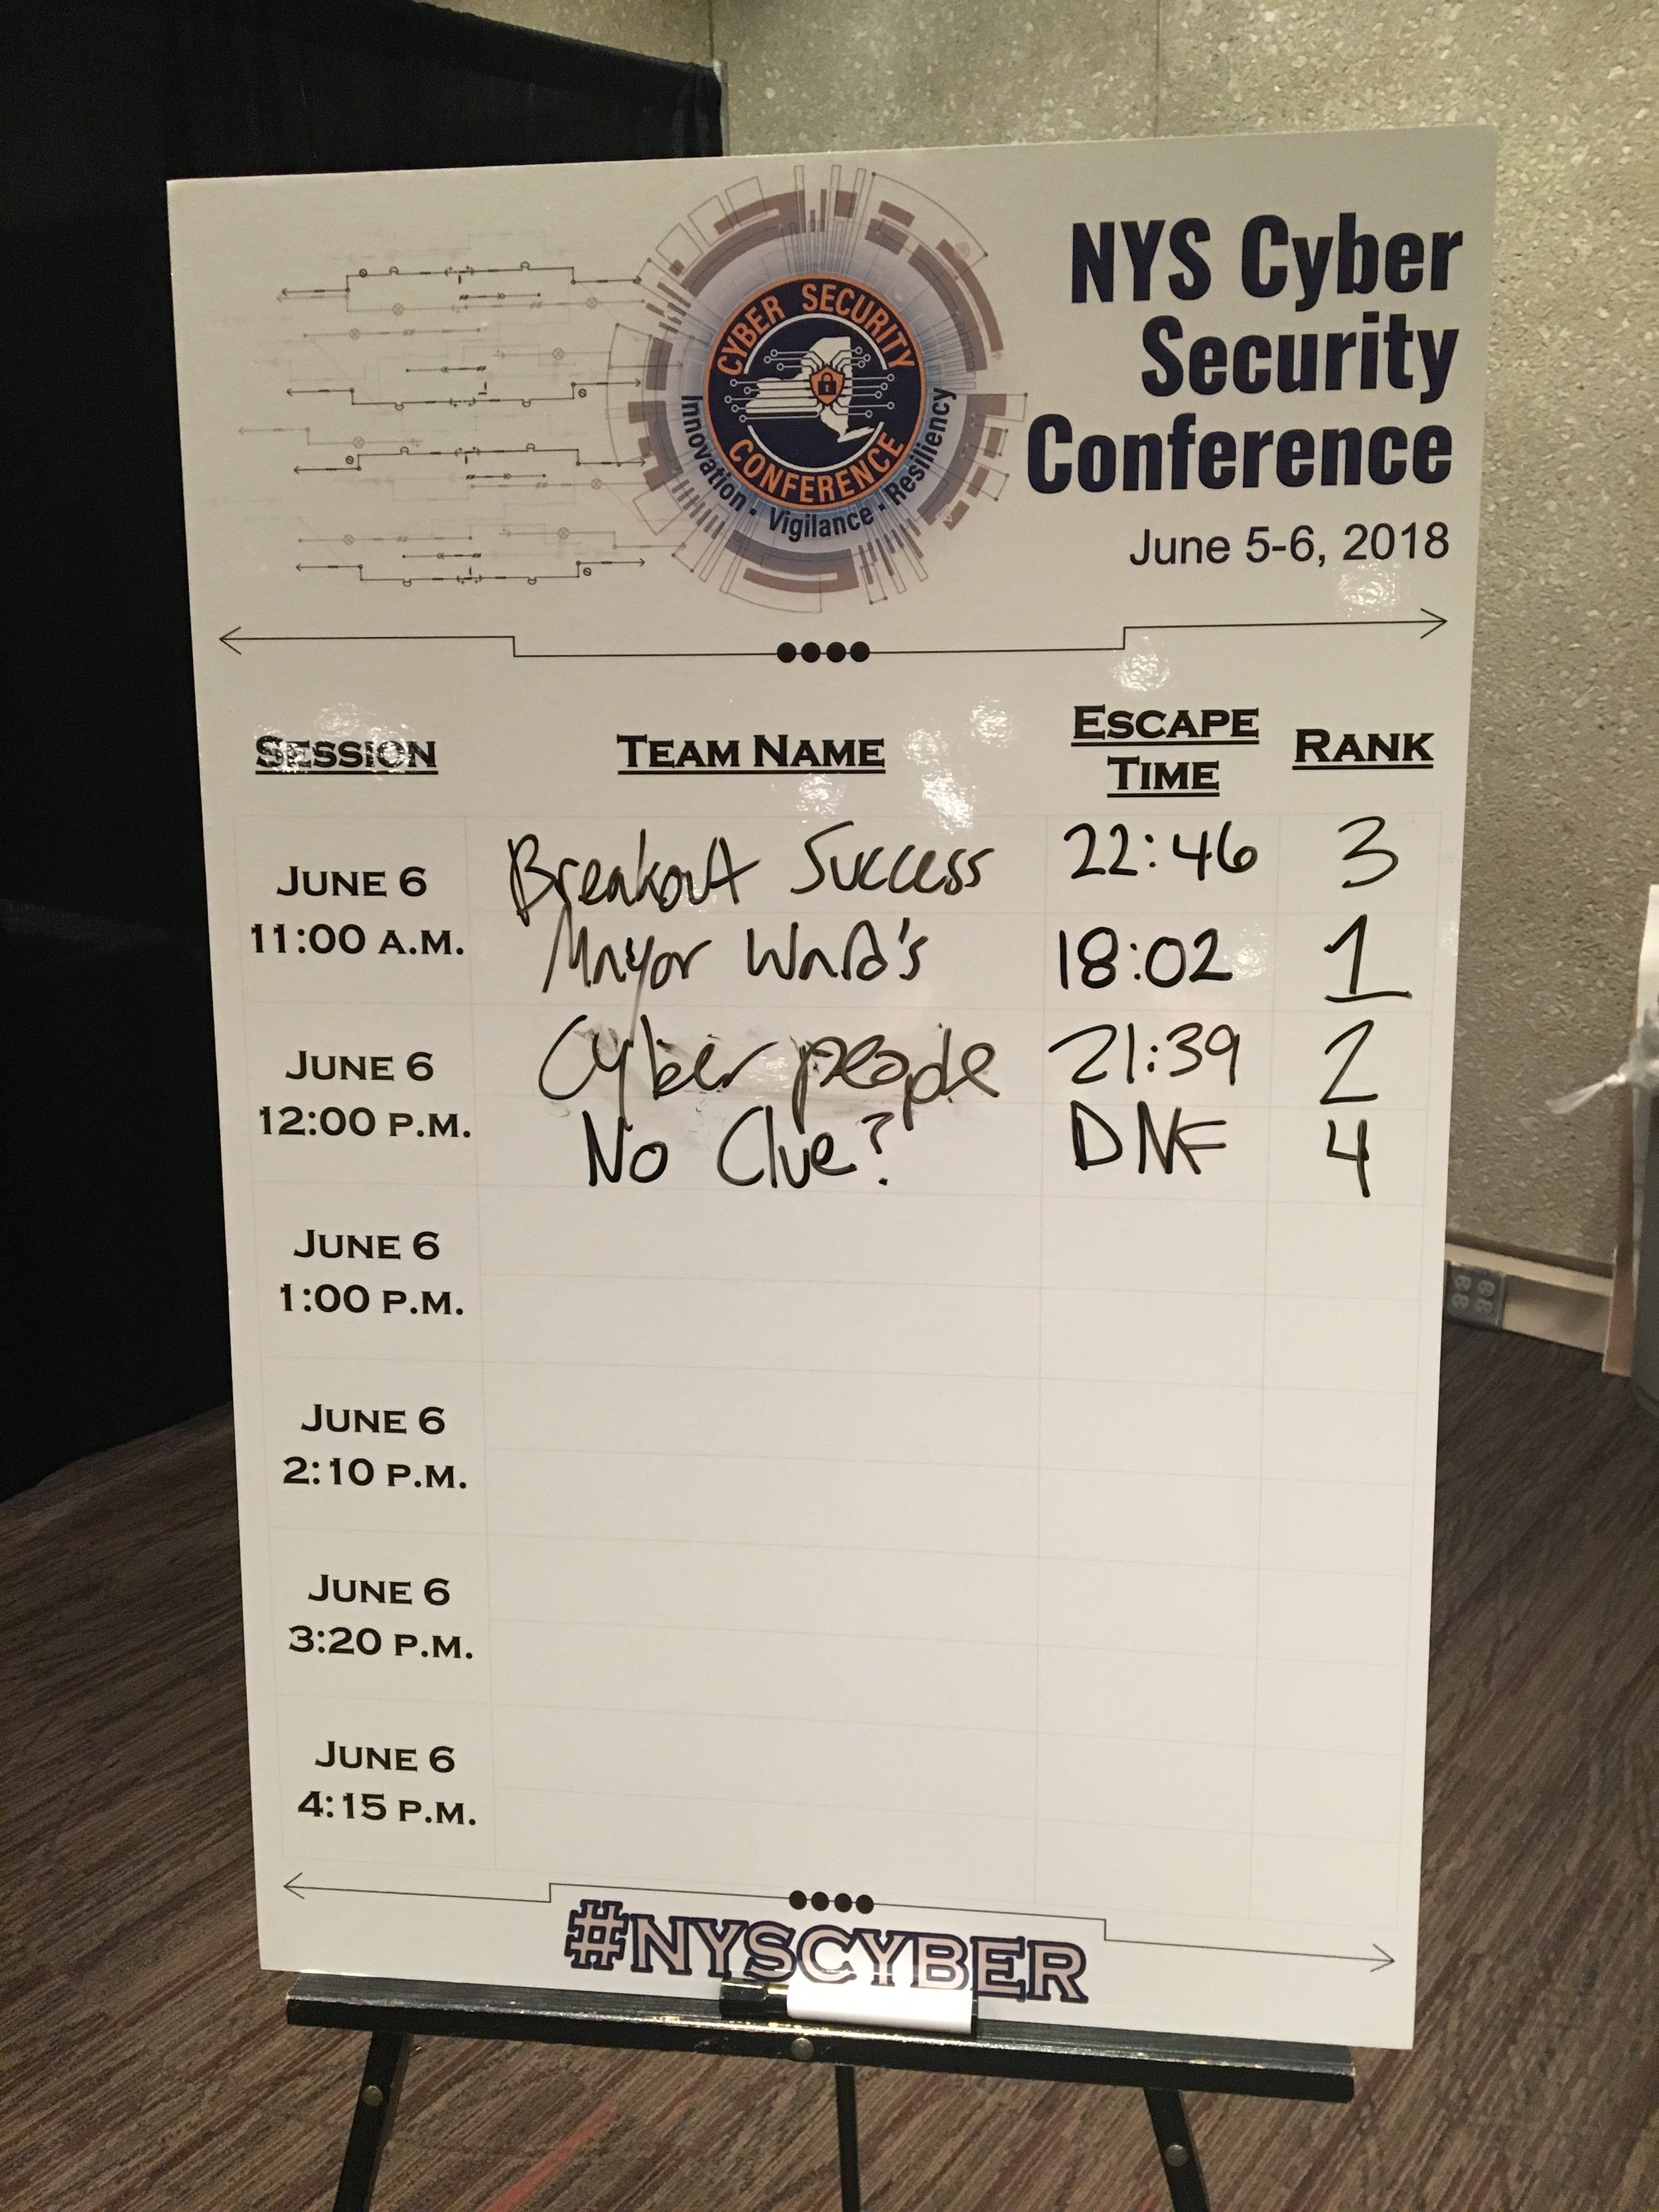 CYBER SECURITY
CONFERENCE
Innovation • Vigilance • Resiliency
NYS Cyber
Security
Conference
June 5-6, 2018
SESSION TEAM NAME ESCAPE TIME RANK
JUNE 6
11:00 A.M.
Breakout Success 22:46 3
Mayor 18:02 1
JUNE 6
12:00 P.M.
Cyber people 21:39 2
No Clue? DNF 4
JUNE 6
1:00 P.M.
JUNE 6
2:10 P.M.
JUNE 6
3:20 P.M.
JUNE 6
4:15 P.M.
#NYSCYBER